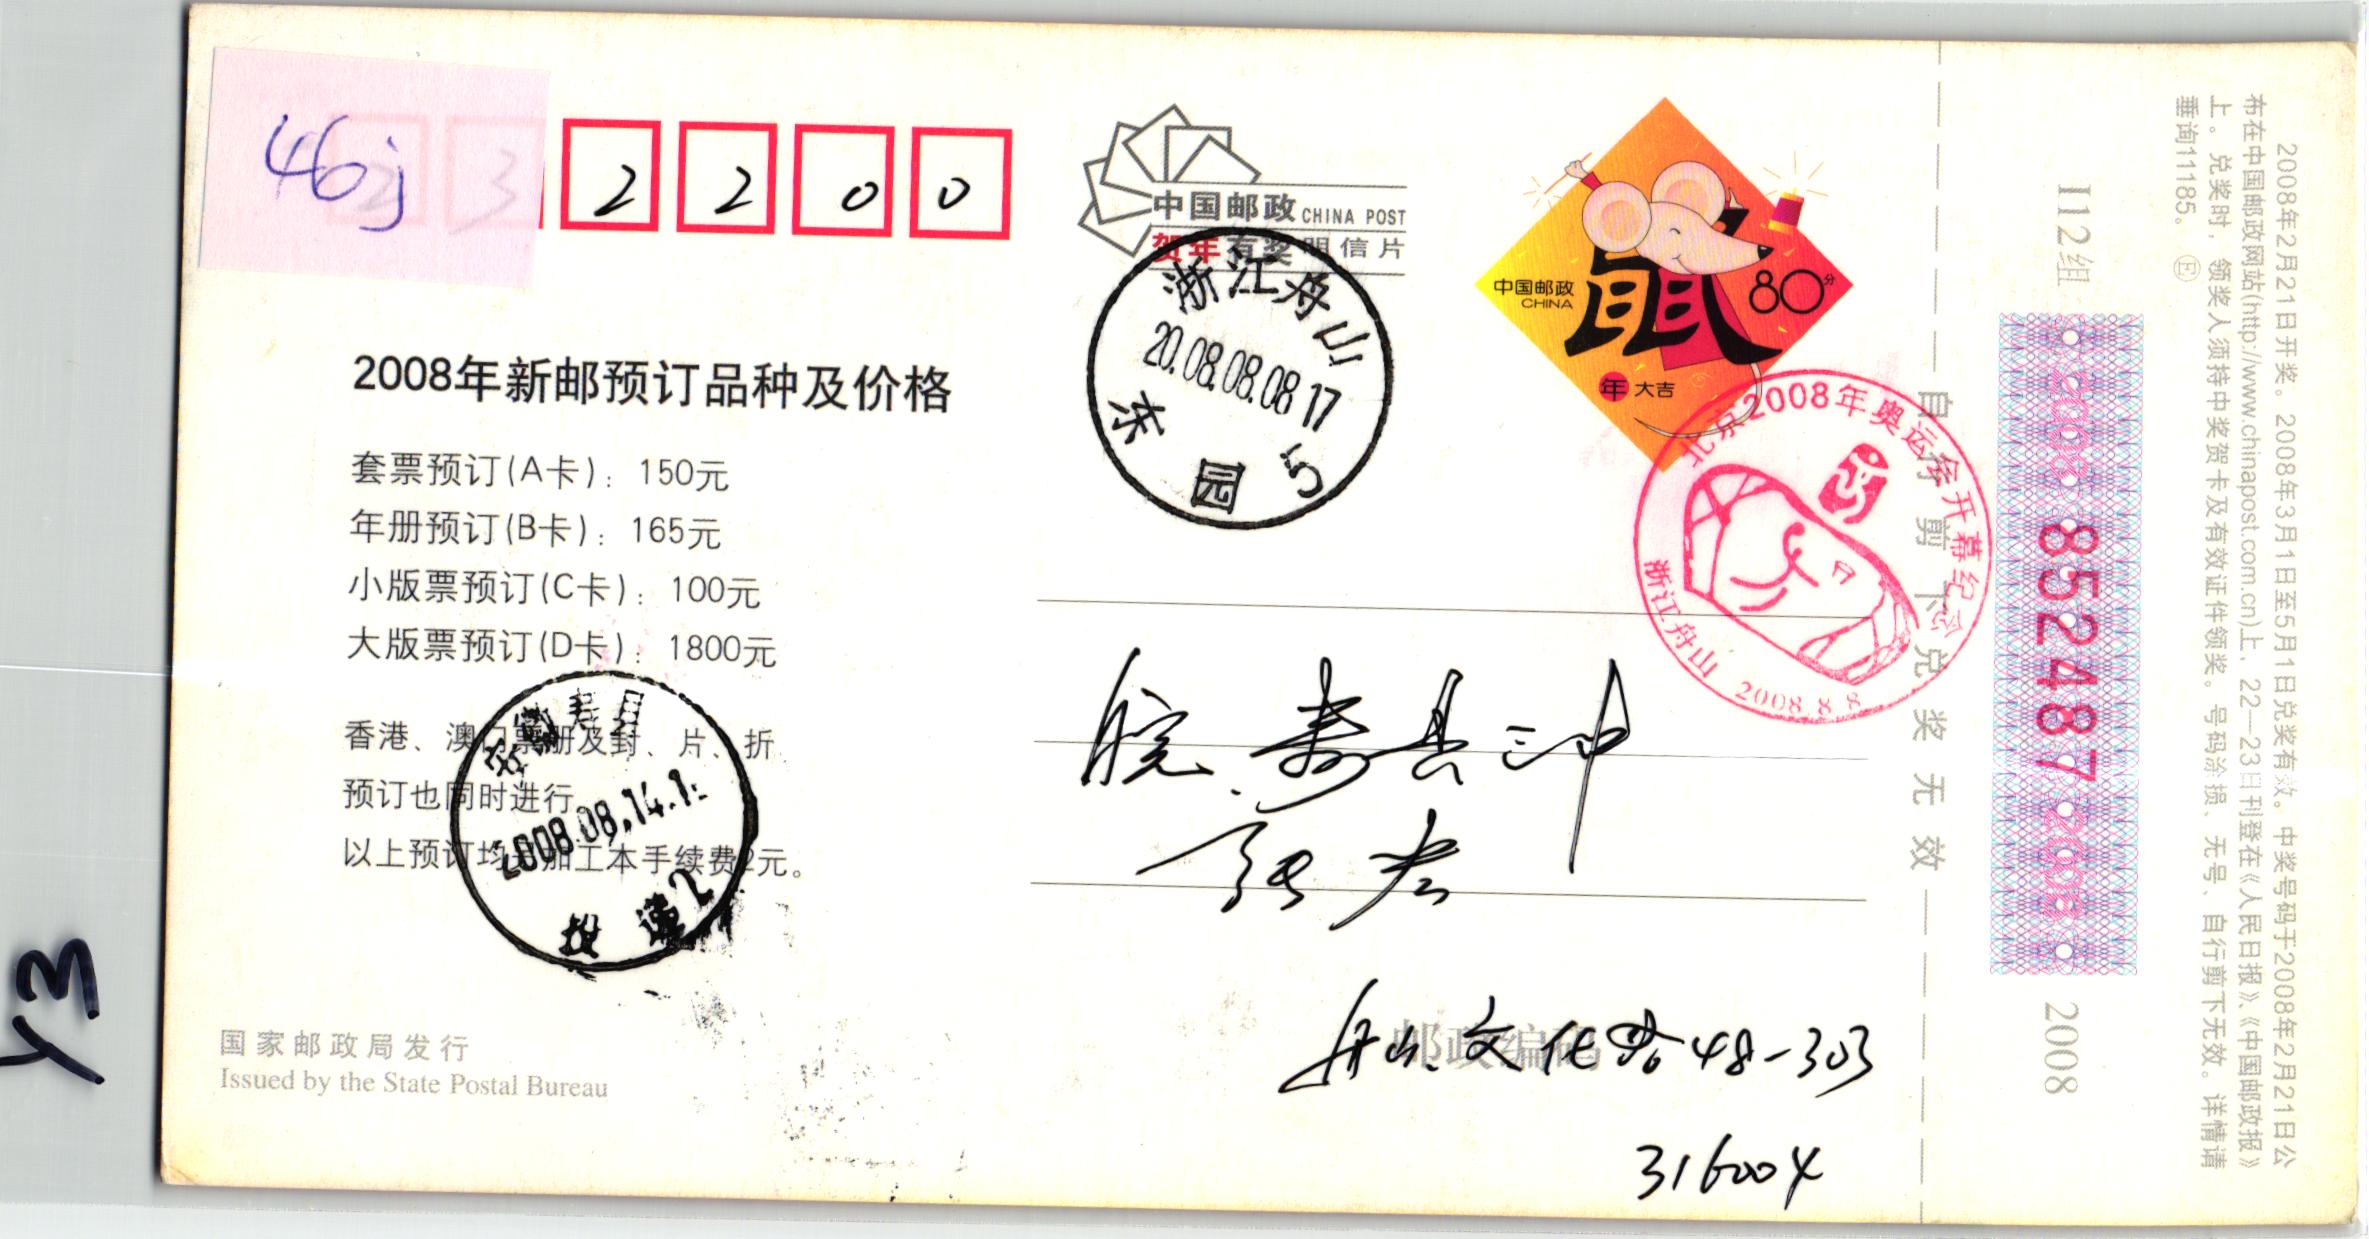 46j
2 3 2 2 0 0
中国邮政 CHINA POST
贺年有奖明信片
中国邮政
CHINA
鼠
80分
年大吉
浙江舟山
20.08.08.08 17
东园 5
北京2008年奥运会开幕纪念
浙江舟山 2008.8.8
2008年新邮预订品种及价格
套票预订(A卡)：150元
年册预订(B卡)：165元
小版票预订(C卡)：100元
大版票预订(D卡)：1800元
香港、澳门票册及封、片、折
预订也同时进行
以上预订均另加工本手续费2元。
安徽寿县
2008.08.14.1
投递2
皖 寿县三中
张宏
邮政编码
舟山文化路48-303
316004
国家邮政局发行
Issued by the State Postal Bureau
自行剪下兑奖无效
I12组
2008 852487 2008
2008
2008年2月21日开奖。2008年3月1日至5月1日兑奖有效。中奖号码于2008年2月21日公
布在中国邮政网站(http://www.chinapost.com.cn)上，22—23日刊登在《人民日报》《中国邮政报》
上。兑奖时，领奖人须持中奖贺卡及有效证件领奖。号码涂损、无号、自行剪下无效。详情请
垂询11185。
Y3